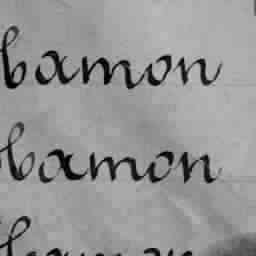 bamon
bamon